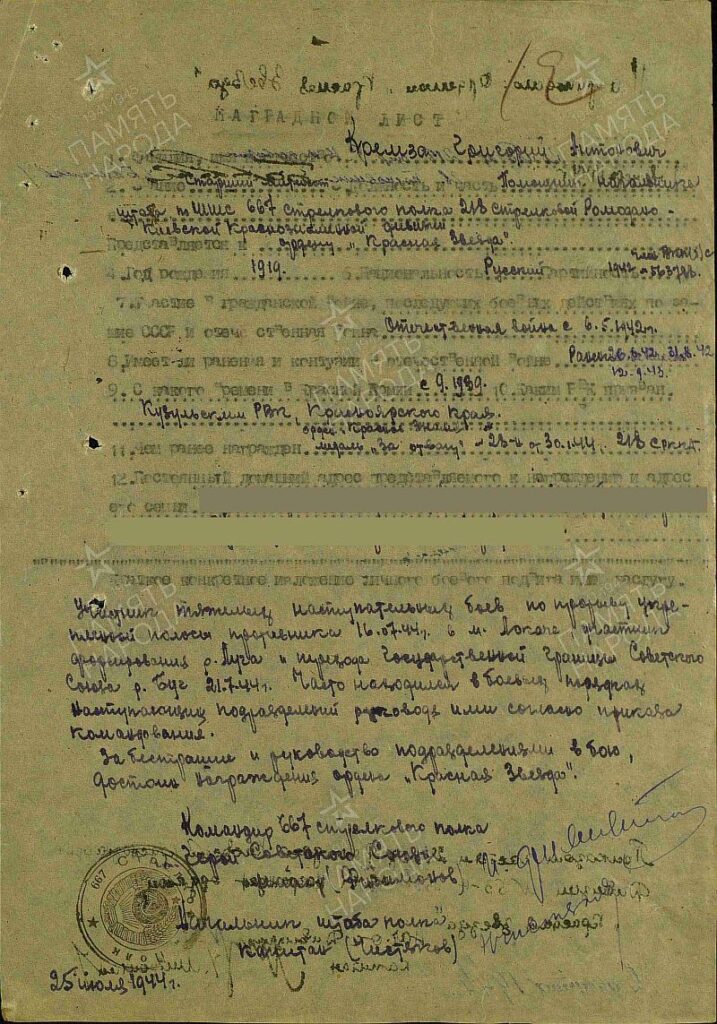 НАГРАДНОЙ ЛИСТ
Кремзан Григорий Антонович
Старший лейтенант Помощник начальника
штаба по ШШС 667 стрелкового полка 218 стрелковой Ромодано-
Киевской Краснознаменной дивизии
Представляется к ордену "Красная Звезда".
4. Год рождения 1919. 5. Национальность Русский
7. Участие в гражданской войне, последующих боевых действиях по за-
щите СССР и отечественная война Отечественная война с 6.5.1942г.
8. Имеет ли ранения и контузии в отечественной войне
12.9.43.
9. С какого времени в Красной Армии с 9.1939. 10. Каким РВК призван
Красноярского Края.
орден "Красная Звезда"
11. Чем ранее награжден медаль "За отвагу" 218
12. Постоянный домашний адрес представляемого к награждению и адрес
его семьи
Краткое конкретное изложение личного боевого подвига или заслуг.
Участник тяжелых наступательных боев по прорыву укре-
пленной полосы противника 16.07.44г. в м. Локачи участник
форсирования р. Луга и перехода Государственной Границы Советского
Союза р. Буг 21.7.44г. Часто находился в боевых порядках
наступающих подразделений руководя ими согласно приказа
командования.
За бесстрашие и руководство подразделениями в бою,
достоин награждения ордена "Красная Звезда".
Командир 667 стрелкового полка
Герой Советского Союза
Начальник штаба полка
капитан (Чистяков)
25 июля 1944г.
ПАМЯТЬ НАРОДА